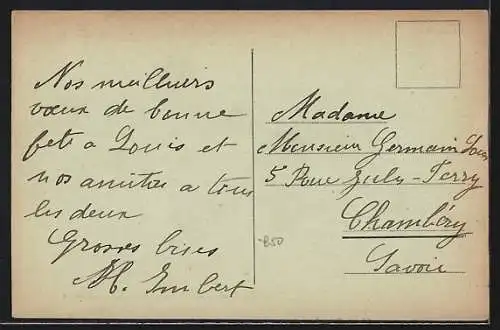 Nos meilliurs
vœux de bonne
fête a Louis et
nos amitiés a tous
les deux
Grosses bises
M. Imbert
Madame
Monsieur Germain Louis
5 Rue Jules-Ferry
Chambéry
Savoie
B50